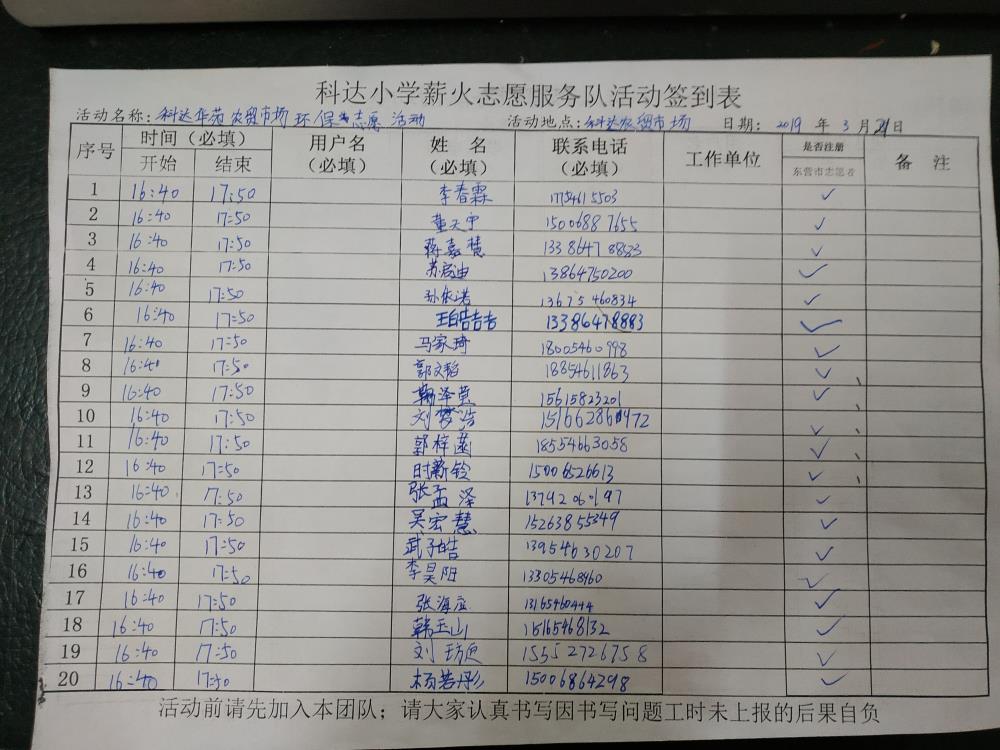 科达小学薪火志愿服务队活动签到表
活动名称：科达华苑农贸市场环保志愿活动 活动地点：科达农贸市场 日期：2019 年 3 月 21日
序号 时间（必填） 用户名（必填） 姓 名（必填） 联系电话（必填） 工作单位 是否注册 备 注
开始 结束 东营市志愿者
1 16:40 17:50 李春霖 17754615503 ✓
2 16:40 17:50 董天宇 15006887655 ✓
3 16:40 17:50 蒋嘉慧 13386478883 ✓
4 16:40 17:50 苏启迪 13864750200 ✓
5 16:40 17:50 孙依诺 13675460834 ✓
6 16:40 17:50 13386478883 ✓
7 16:40 17:50 马家琦 18005460998 ✓
8 16:40 17:50 郭文韬 18854611863 ✓
9 16:40 17:50 鞠泽萱 15615823201 ✓
10 16:40 17:50 刘梦浩 15166286972 ✓
11 16:40 17:50 郭梓涵 18554663058 ✓
12 16:40 17:50 时新铃 15006526613 ✓
13 16:40 17:50 张孟泽 13792060197 ✓
14 16:40 17:50 吴宏慧 15263855349 ✓
15 16:40 17:50 武子皓 13954630207 ✓
16 16:40 17:50 李昊阳 13305468960 ✓
17 16:40 17:50 张海应 13165460444 ✓
18 16:40 17:50 韩玉山 15165468132 ✓
19 16:40 17:50 刘 15552726758 ✓
20 16:40 17:50 杨若彤 15006864298 ✓
活动前请先加入本团队；请大家认真书写因书写问题工时未上报的后果自负